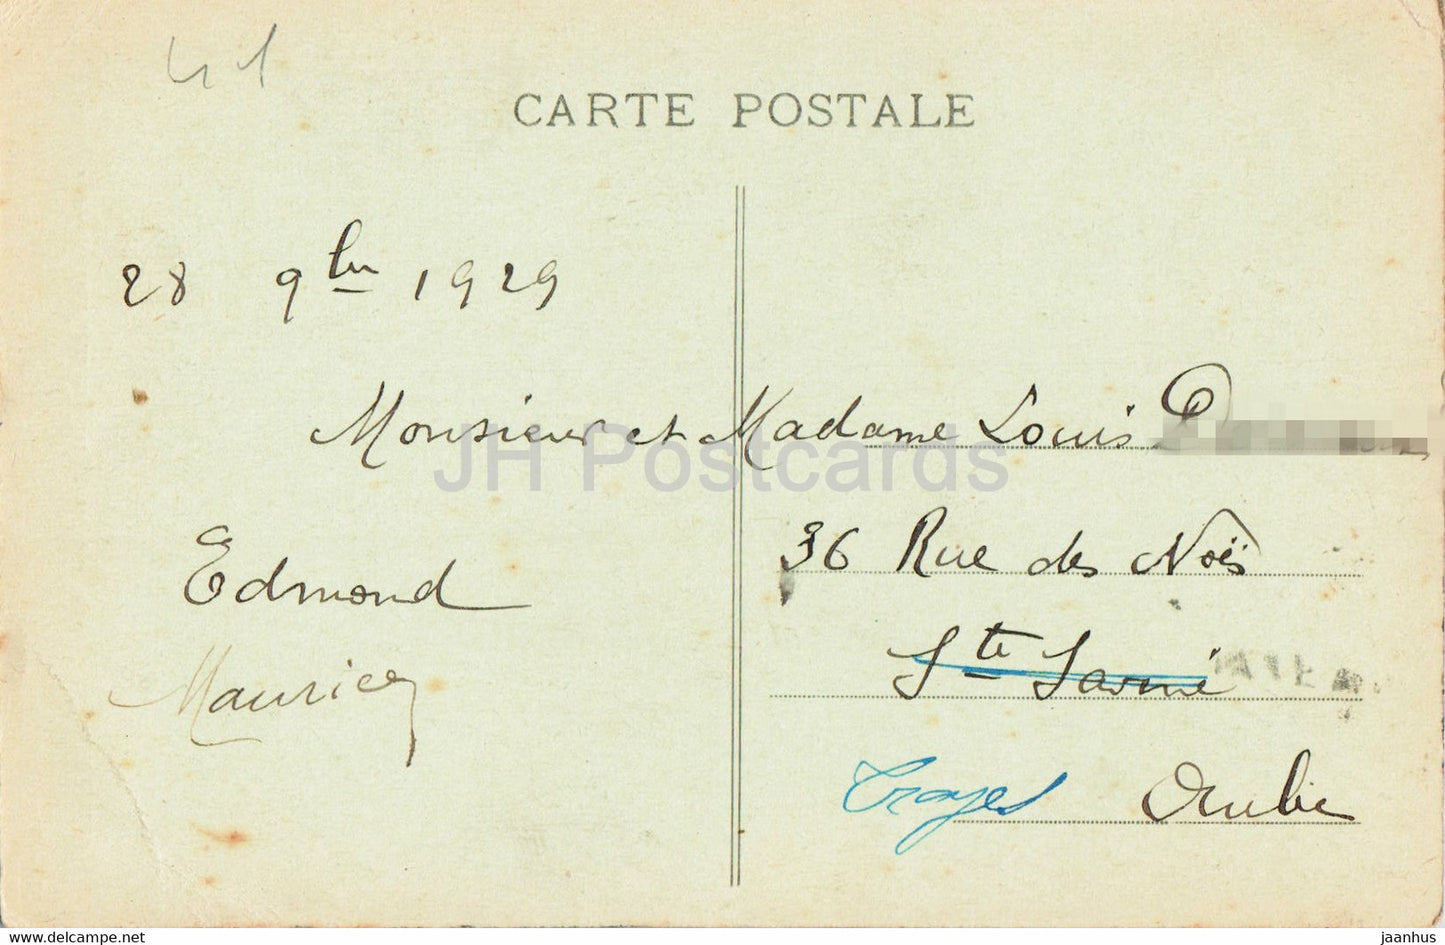 41
CARTE POSTALE
28 9bre 1929
Monsieur et Madame Louis
36 Rue des Noës
Ste Savine
Troyes Aube
Edmond
Maurice
JH Postcards
www.delcampe.net
jaanhus